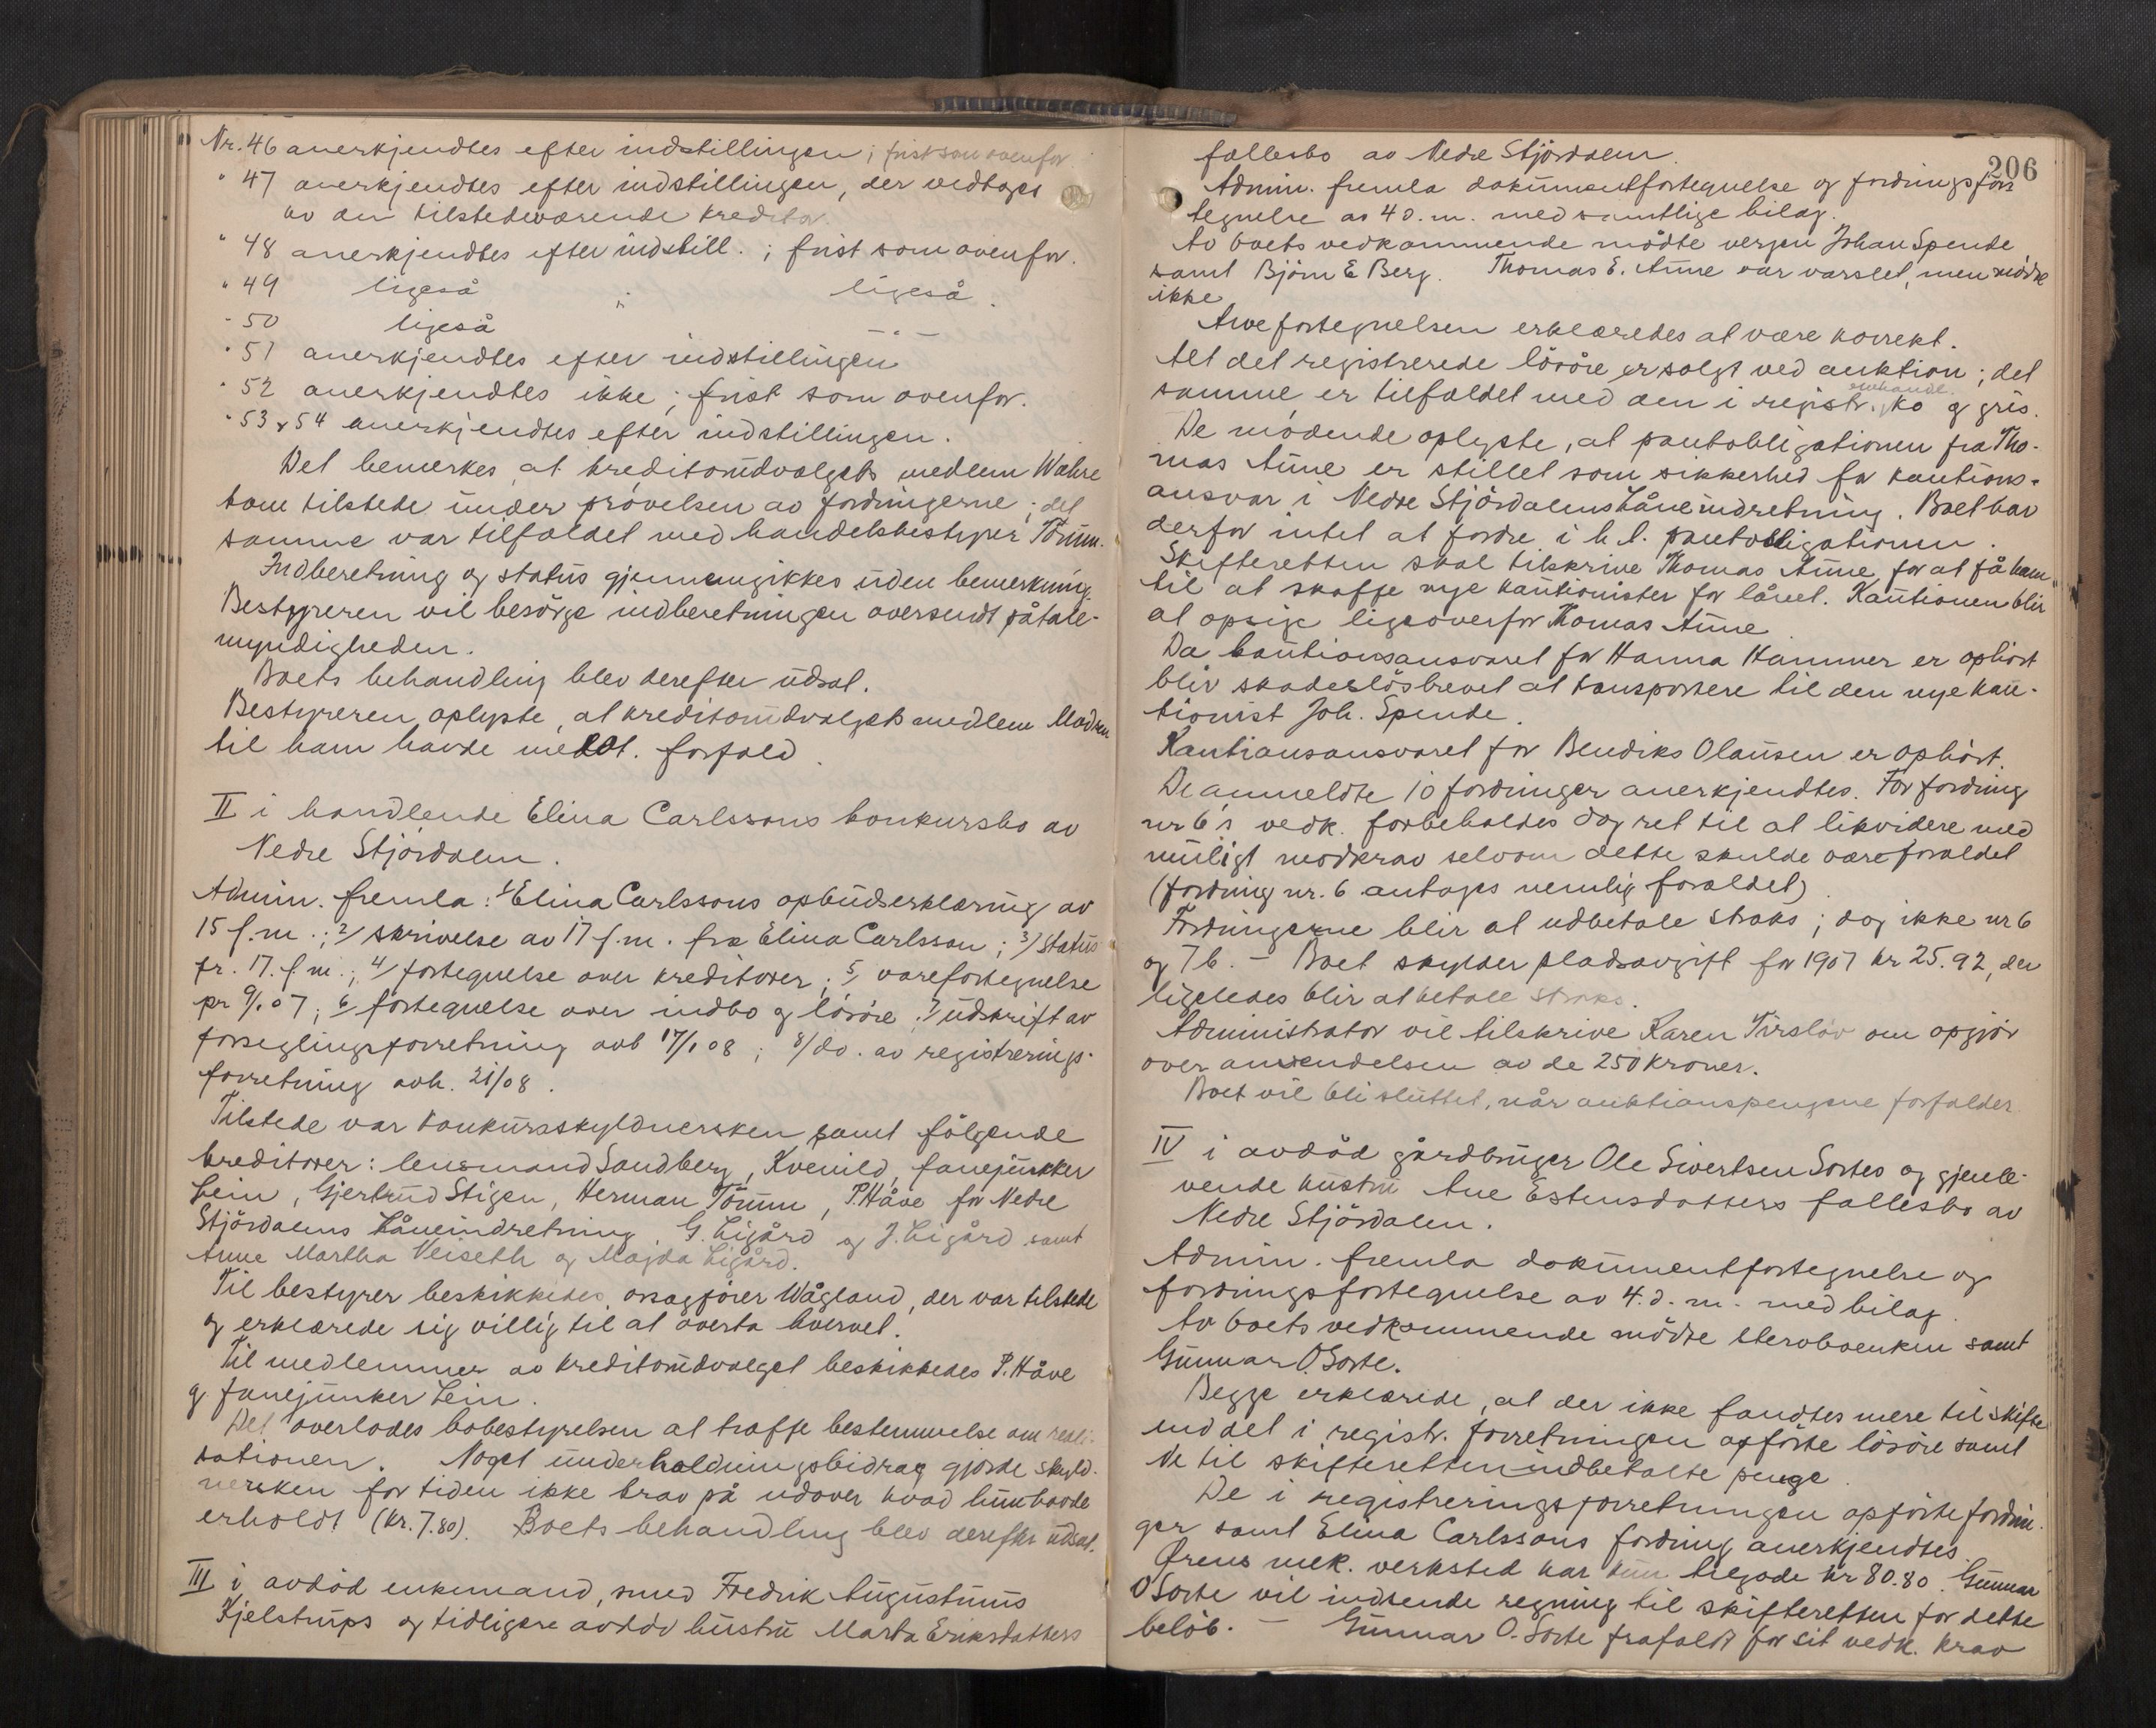 Nr. 46 anerkjendtes efter indstillingen; frist som ovenfor
" 47 anerkjendtes efter indstillingen, der vedtoges
av den tilstedeværende kreditor.
" 48 anerkjendtes efter indstill.; frist som ovenfor.
" 49 ligeså ; ligeså.
" 50 ligeså — " —
" 51 anerkjendtes efter indstillingen
" 52 anerkjendtes ikke; frist som ovenfor.
" 53 & 54 anerkjendtes efter indstillingen.
Det bemerkes, at kreditorudvalgets medlem Wahre
kom tilstede under prøvelsen av fordringerne; det
samme var tilfældet med handelsbestyrer Tömm.
Indberetning og status gjennemgikkes uden bemerkning.
Bestyreren vil besörge indberetningen oversendt påtale-
myndigheden.
Boets behandling blev derefter udsat.
Bestyreren oplyste, at kreditorudvalgets medlem Madsen
til ham havde meldt forfald.
II i handlende Elina Carlssons konkursbo av
Nedre Stjördalen.
Admin. fremla: 1/ Elina Carlssons opbudserklæring av
15 f.m.; 2/ skrivelse av 17 f.m. fra Elina Carlsson; 3/ status
pr. 17. f.m.; 4/ fortegnelse over kreditorer; 5/ varefortegnelse
pr 9/1 07; 6/ fortegnelse over indbo og lösöre; 7/ udskrift av
forseglingsforretning avh 17/1 08; 8/ do. av registrerings-
forretning avh. 21/08.
Tilstede var konkursskyldnersken samt fölgende
kreditorer: lensmand Sandberg, Kvenild, fanejunker
Lein, Gjertrud Stigen, Herman Tömm, P. Håve for Nedre
Stjördalens Låneindretning, G. Ligård og J. Ligård samt
Anne Martha Veiseth og Magda Ligård.
Til bestyrer beskikkedes, orsagförer Wågland, der var tilstede
og erklærede sig villig til at overta hvervet.
Til medlemmer av kreditorudvalget beskikkedes P. Håve
og fanejunker Lein.
Det overlodes bobestyrelsen at træffe bestemmelse om reali-
sationen. Noget underholdningsbidrag gjorde skyld-
nersken for tiden ikke krav på udover hvad hun havde
erholdt (kr. 7.80). Boets behandling blev derefter udsat.
III i avdöd enkemand, smed Fredrik Augustinus
Kjelstrups og tidligere avdöd hustru Marta Eriksdatters
206
fællesbo av Nedre Stjördalen.
Admin. fremla dokumentfortegnelse og fordringsfor-
tegnelse av 4 d.m. med samtlige bilag.
Av boets vedkommende mödte vergen Johan Spende
samt Björn E Berg. Thomas E. Aune var varslet, men mödte
ikke
Arvefortegnelsen erklæredes at være korrekt.
Alt det registrerede lösöre er solgt ved auktion; det
samme er tilfældet med den i registr. omhandl. ko og gris.
De mödende oplyste, at pantobligationen fra Tho-
mas Aune er stillet som sikkerhed for kautions-
ansvar i Nedre Stjördalens Låneindretning. Boet har
derfor intet at fordre i h.t. pantobligationen.
Skifteretten skal tilskrive Thomas Aune for at få ham
til at skaffe nye kautionister for lånet. Kautionen blir
at opsige ligeoverfor Thomas Aune.
Da kautionsansvaret for Hanna Hammer er ophört
blir skadeslösbrevet at transportere til den nye kau-
tionist Joh. Spende.
Kautionsansvaret for Bendiks Olausen er ophört.
De anmeldte 10 fordringer anerkjendtes. For fordring
nr 6's vedk. forbeholdes dog ret til at likvidere med
muligt modkrav selvom dette skulde være forældet
(fordring nr. 6 antages nemlig forældet).
Fordringerne blir at udbetale straks; dog ikke nr 6
og 7 b. — Boet skylder pladsavgift for 1907 kr 25.92, der
ligeledes blir at betale straks.
Administrator vil tilskrive Karen Tirslöv om opgjör
over anvendelsen av de 250 kroner.
Boet vil bli sluttet, når auktionspengene forfalder
IV i avdöd gårdbruger Ole Sivertsen Sortes og gjenle-
vende hustru Ane Estensdatters fællesbo av
Nedre Stjördalen.
Admin. fremla dokumentfortegnelse og
fordringsfortegnelse av 4. d.m. med bilag.
Av boets vedkommende mödte sterвboenken samt
Gunnar O. Sorte.
Begge erklærede, at der ikke fandtes mere til skifte
end det i registr. forretningen opförte lösöre samt
de til skifteretten indbetalte penge.
De i registreringsforretningen opförte fordrin-
ger samt Elina Carlssons fordring anerkjendtes.
Ørens mek. verksted har kun tilgode kr 80.80. Gunnar
O Sorte vil indsende regning til skifteretten for dette
belöb. — Gunnar O. Sorte frafaldt for sit vedk. krav